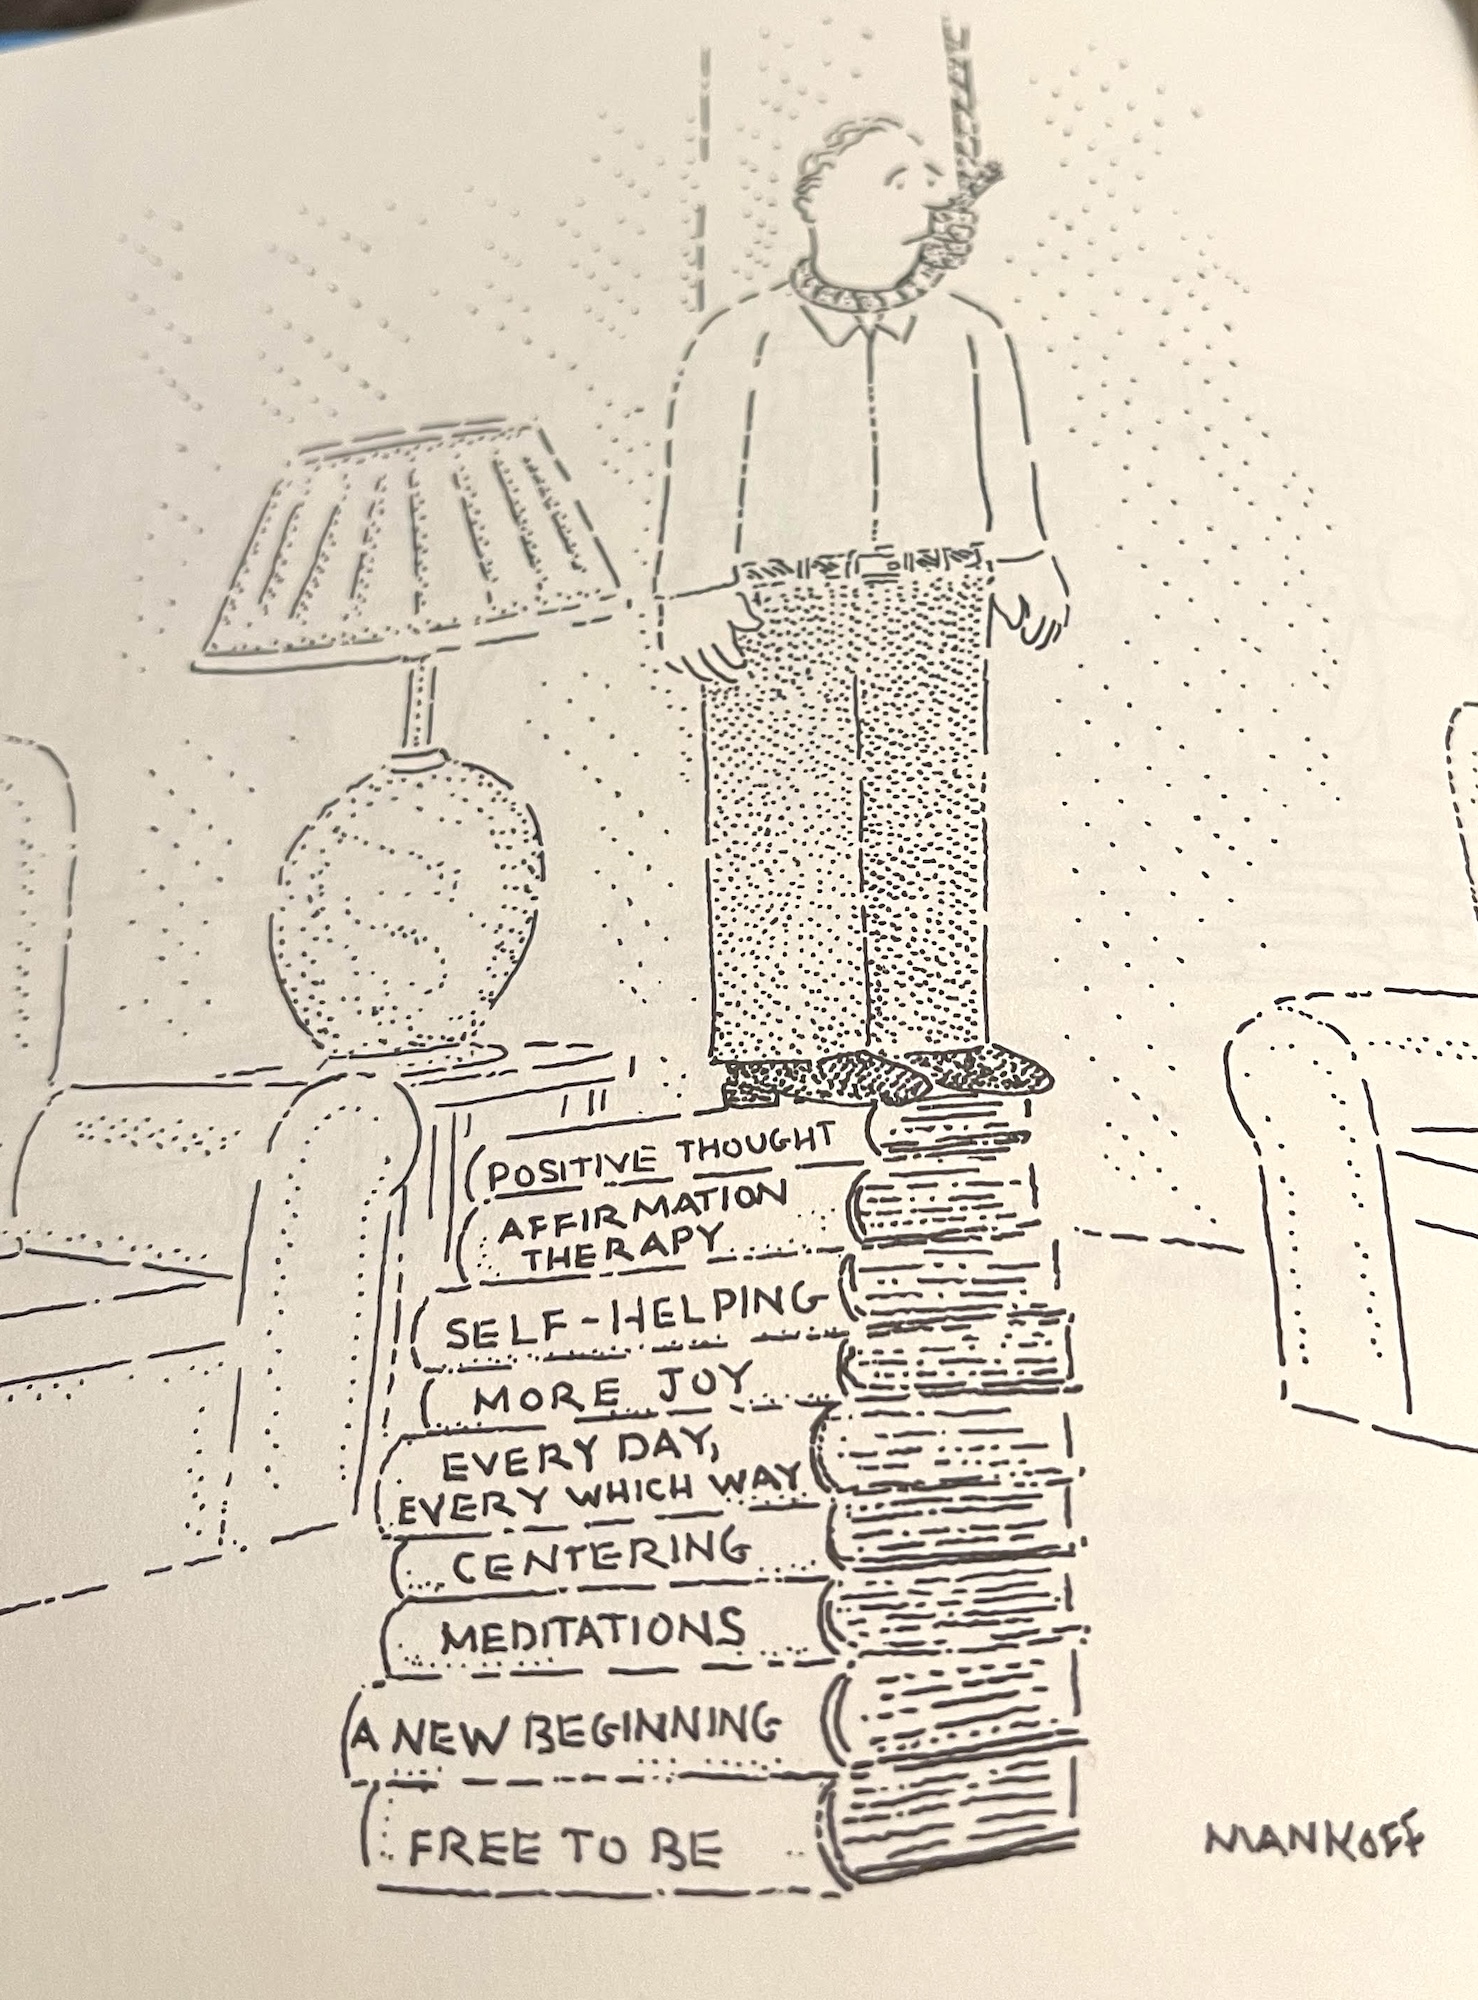 POSITIVE THOUGHT
AFFIRMATION
THERAPY
SELF-HELPING
MORE JOY
EVERY DAY,
EVERY WHICH WAY
CENTERING
MEDITATIONS
A NEW BEGINNING
FREE TO BE
MANKOFF